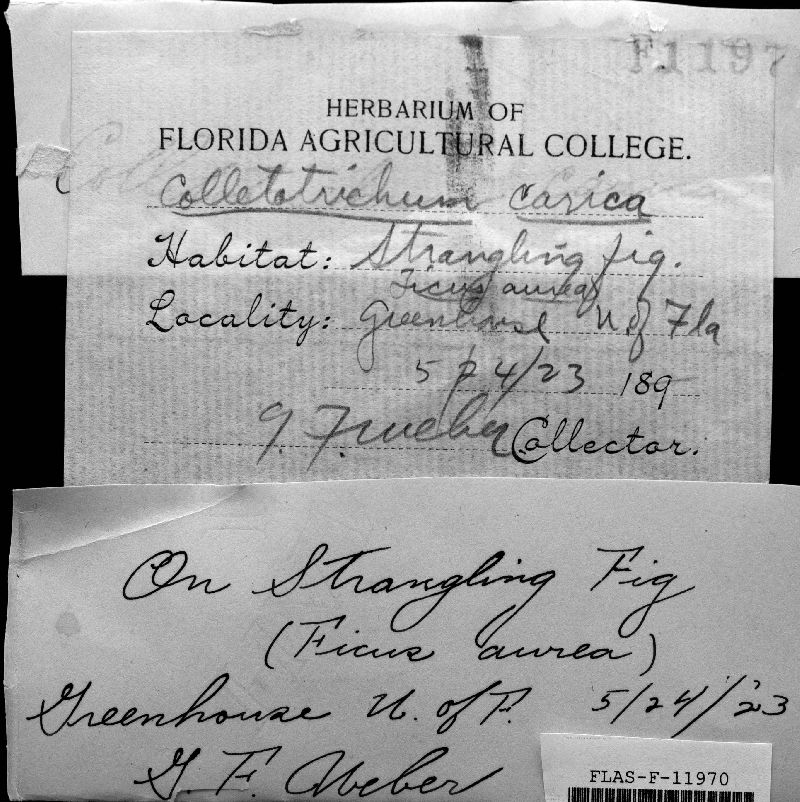 F1197
HERBARIUM OF
FLORIDA AGRICULTURAL COLLEGE.
Colletotrichum carica
Habitat: Strangling fig.
Ficus aurea
Locality: Greenhouse U of Fla
5/24/23 189
G. F. Weber Collector.
On Strangling Fig
(Ficus aurea)
Greenhouse U. of F. 5/24/23
G. F. Weber
FLAS-F-11970